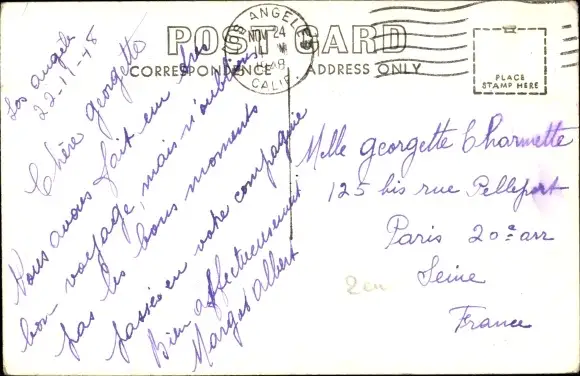 POST CARD
CORRESPONDENCE
ADDRESS ONLY
PLACE
STAMP HERE
LOS ANGELES
NOV 24
1948
CALIF.
Los Angeles
22-11-48
Chère georgette
Nous avons fait un
bon voyage, mais n'oublions
pas les bons moments
passés en votre compagnie
Bien affectueusement
Margot Albert
Melle georgette Charmette
125 bis rue Pelleport
Paris 20e arr
Seine
France